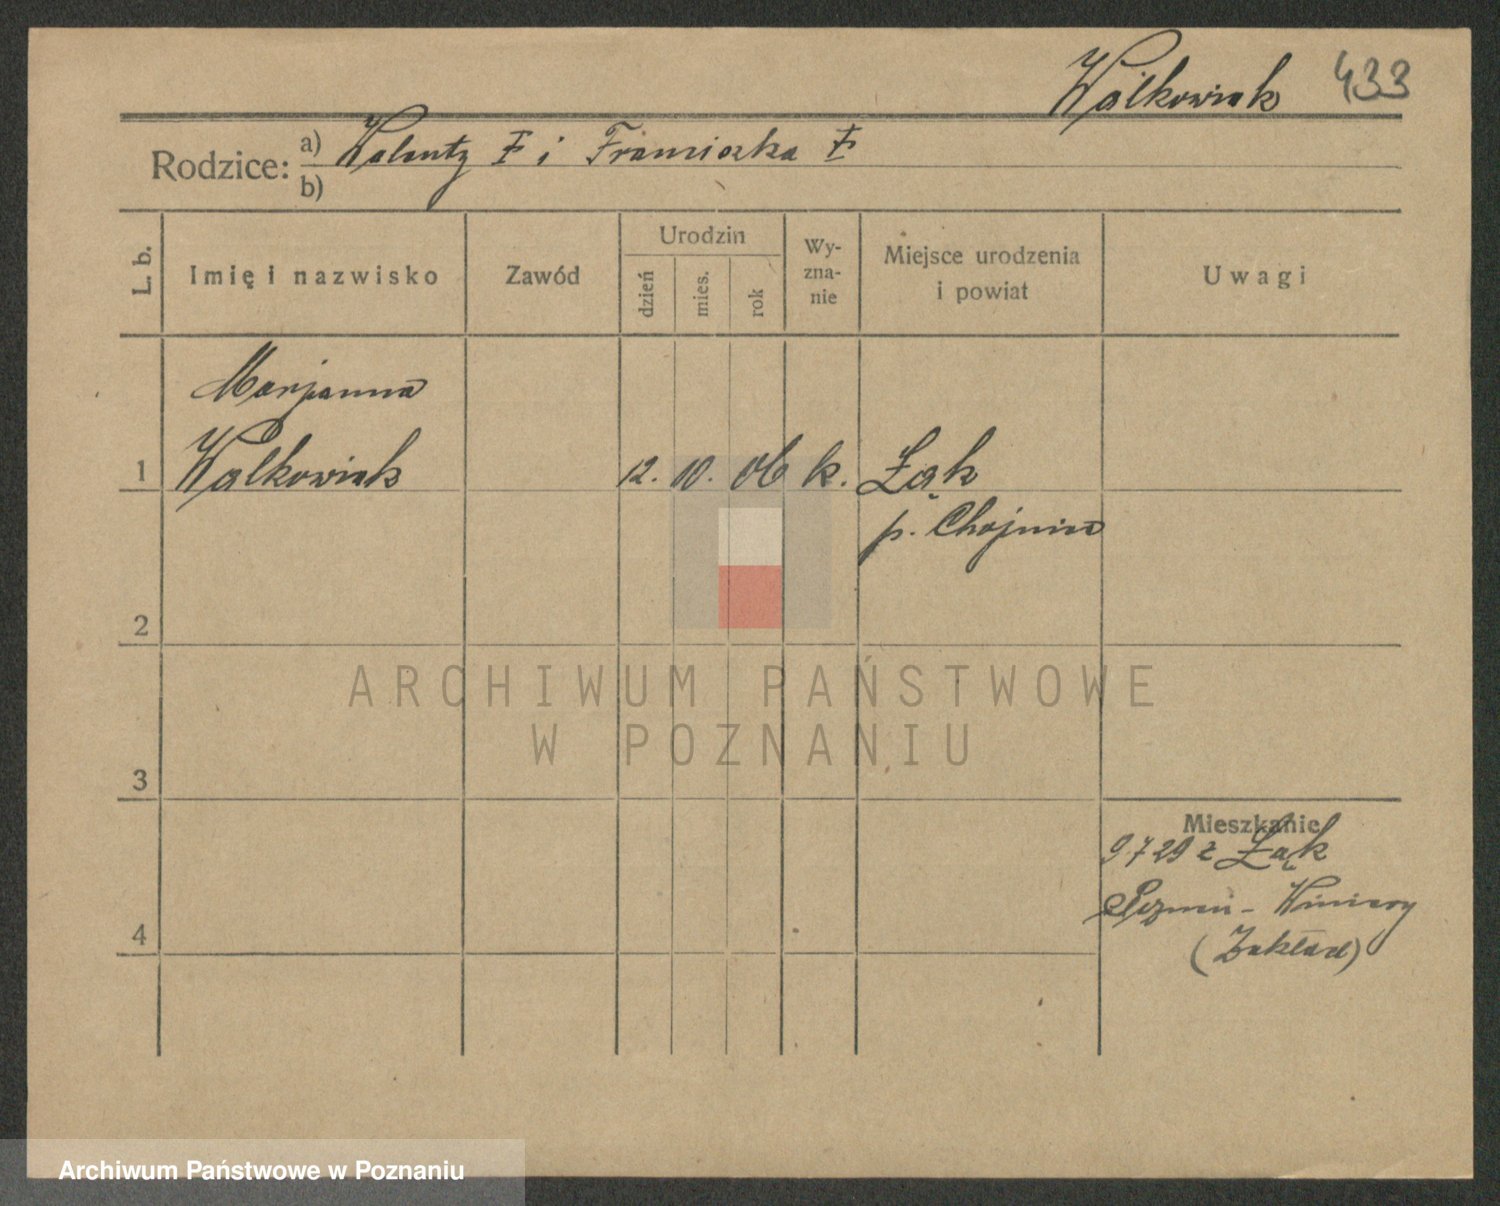 Walkowiak 433
Rodzice: a) Walenty † i Franciszka †
b)
L. b. Imię i nazwisko Zawód Urodzin dzień mies. rok Wy-zna-nie Miejsce urodzenia i powiat Uwagi
Marjanna
1 Walkowiak 12. 10. 06 k. Łąk
p. Chojnice
2
ARCHIWUM PAŃSTWOWE
W POZNANIU
3
Mieszkanie
9 7 29 z Łąk
Poznań - Winiary
4
(Zakład)
Archiwum Państwowe w Poznaniu